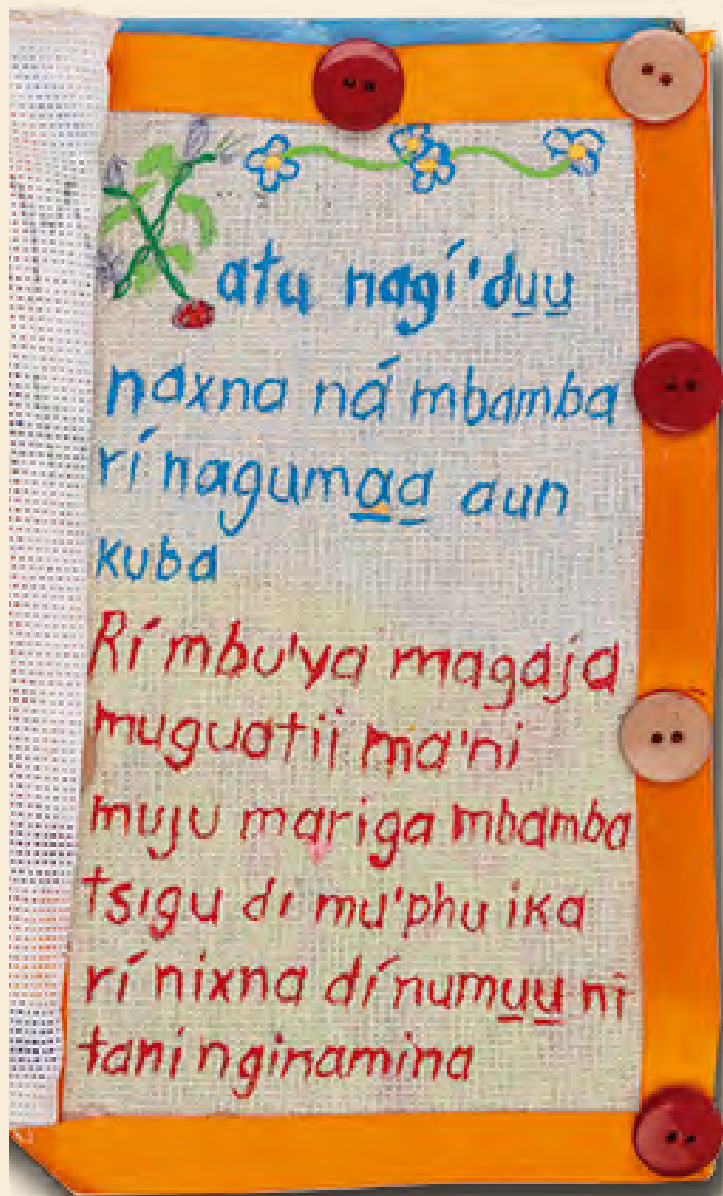 Xatu̱ nagí'du̱u̱
naxna ná mbamba
rí naguma̱a̱ aun
kuba
Rí mbu'ya magaja
muguatii ma'ni
muju mariga mbamba
tsigu di mu'phu ika
rí nixna dí numu̱u̱ nî
tani nginamina